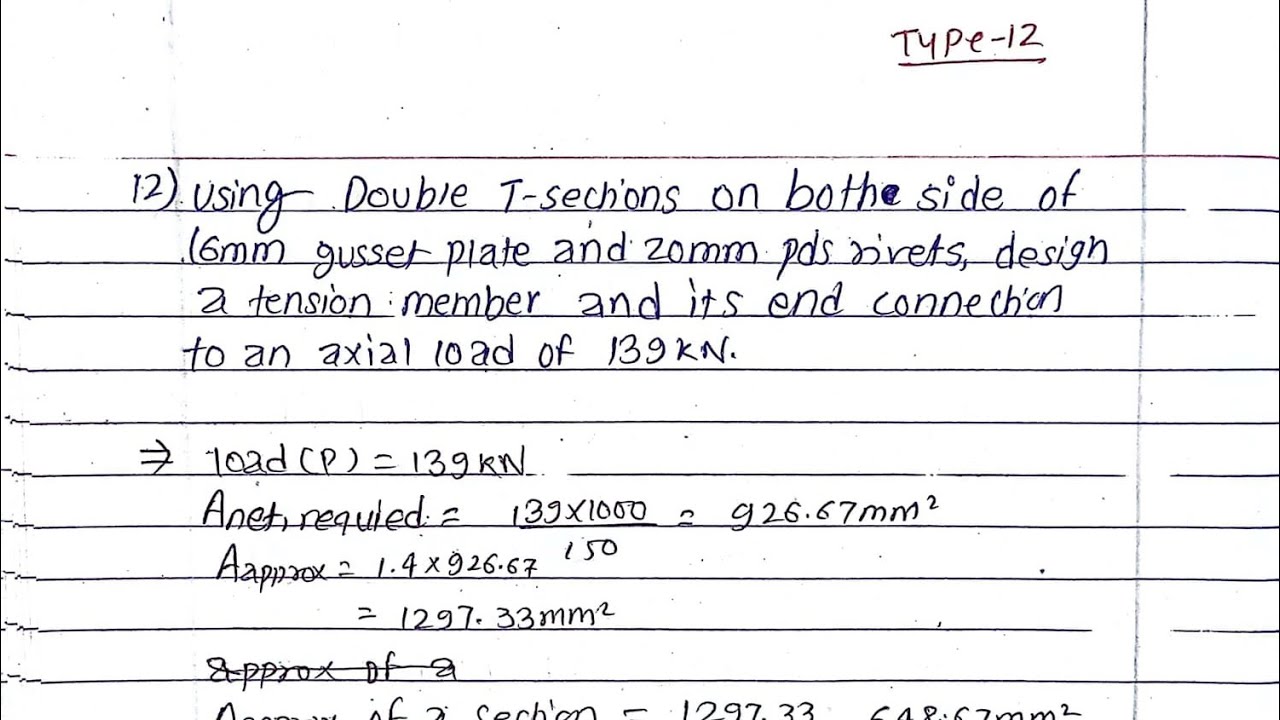 Type-12
12) Using Double T-sections on bothe side of
16mm gusset plate and 20mm pds rivets, design
a tension member and its end connection
to an axial load of 139kN.
⇒ load (P) = 139kN
Anet, requied = 139×1000 / 150 = 926.67mm²
Aapprox = 1.4×926.67
= 1297.33mm²
approx of a
Aapprox of a section = 1297.33 648.67mm²